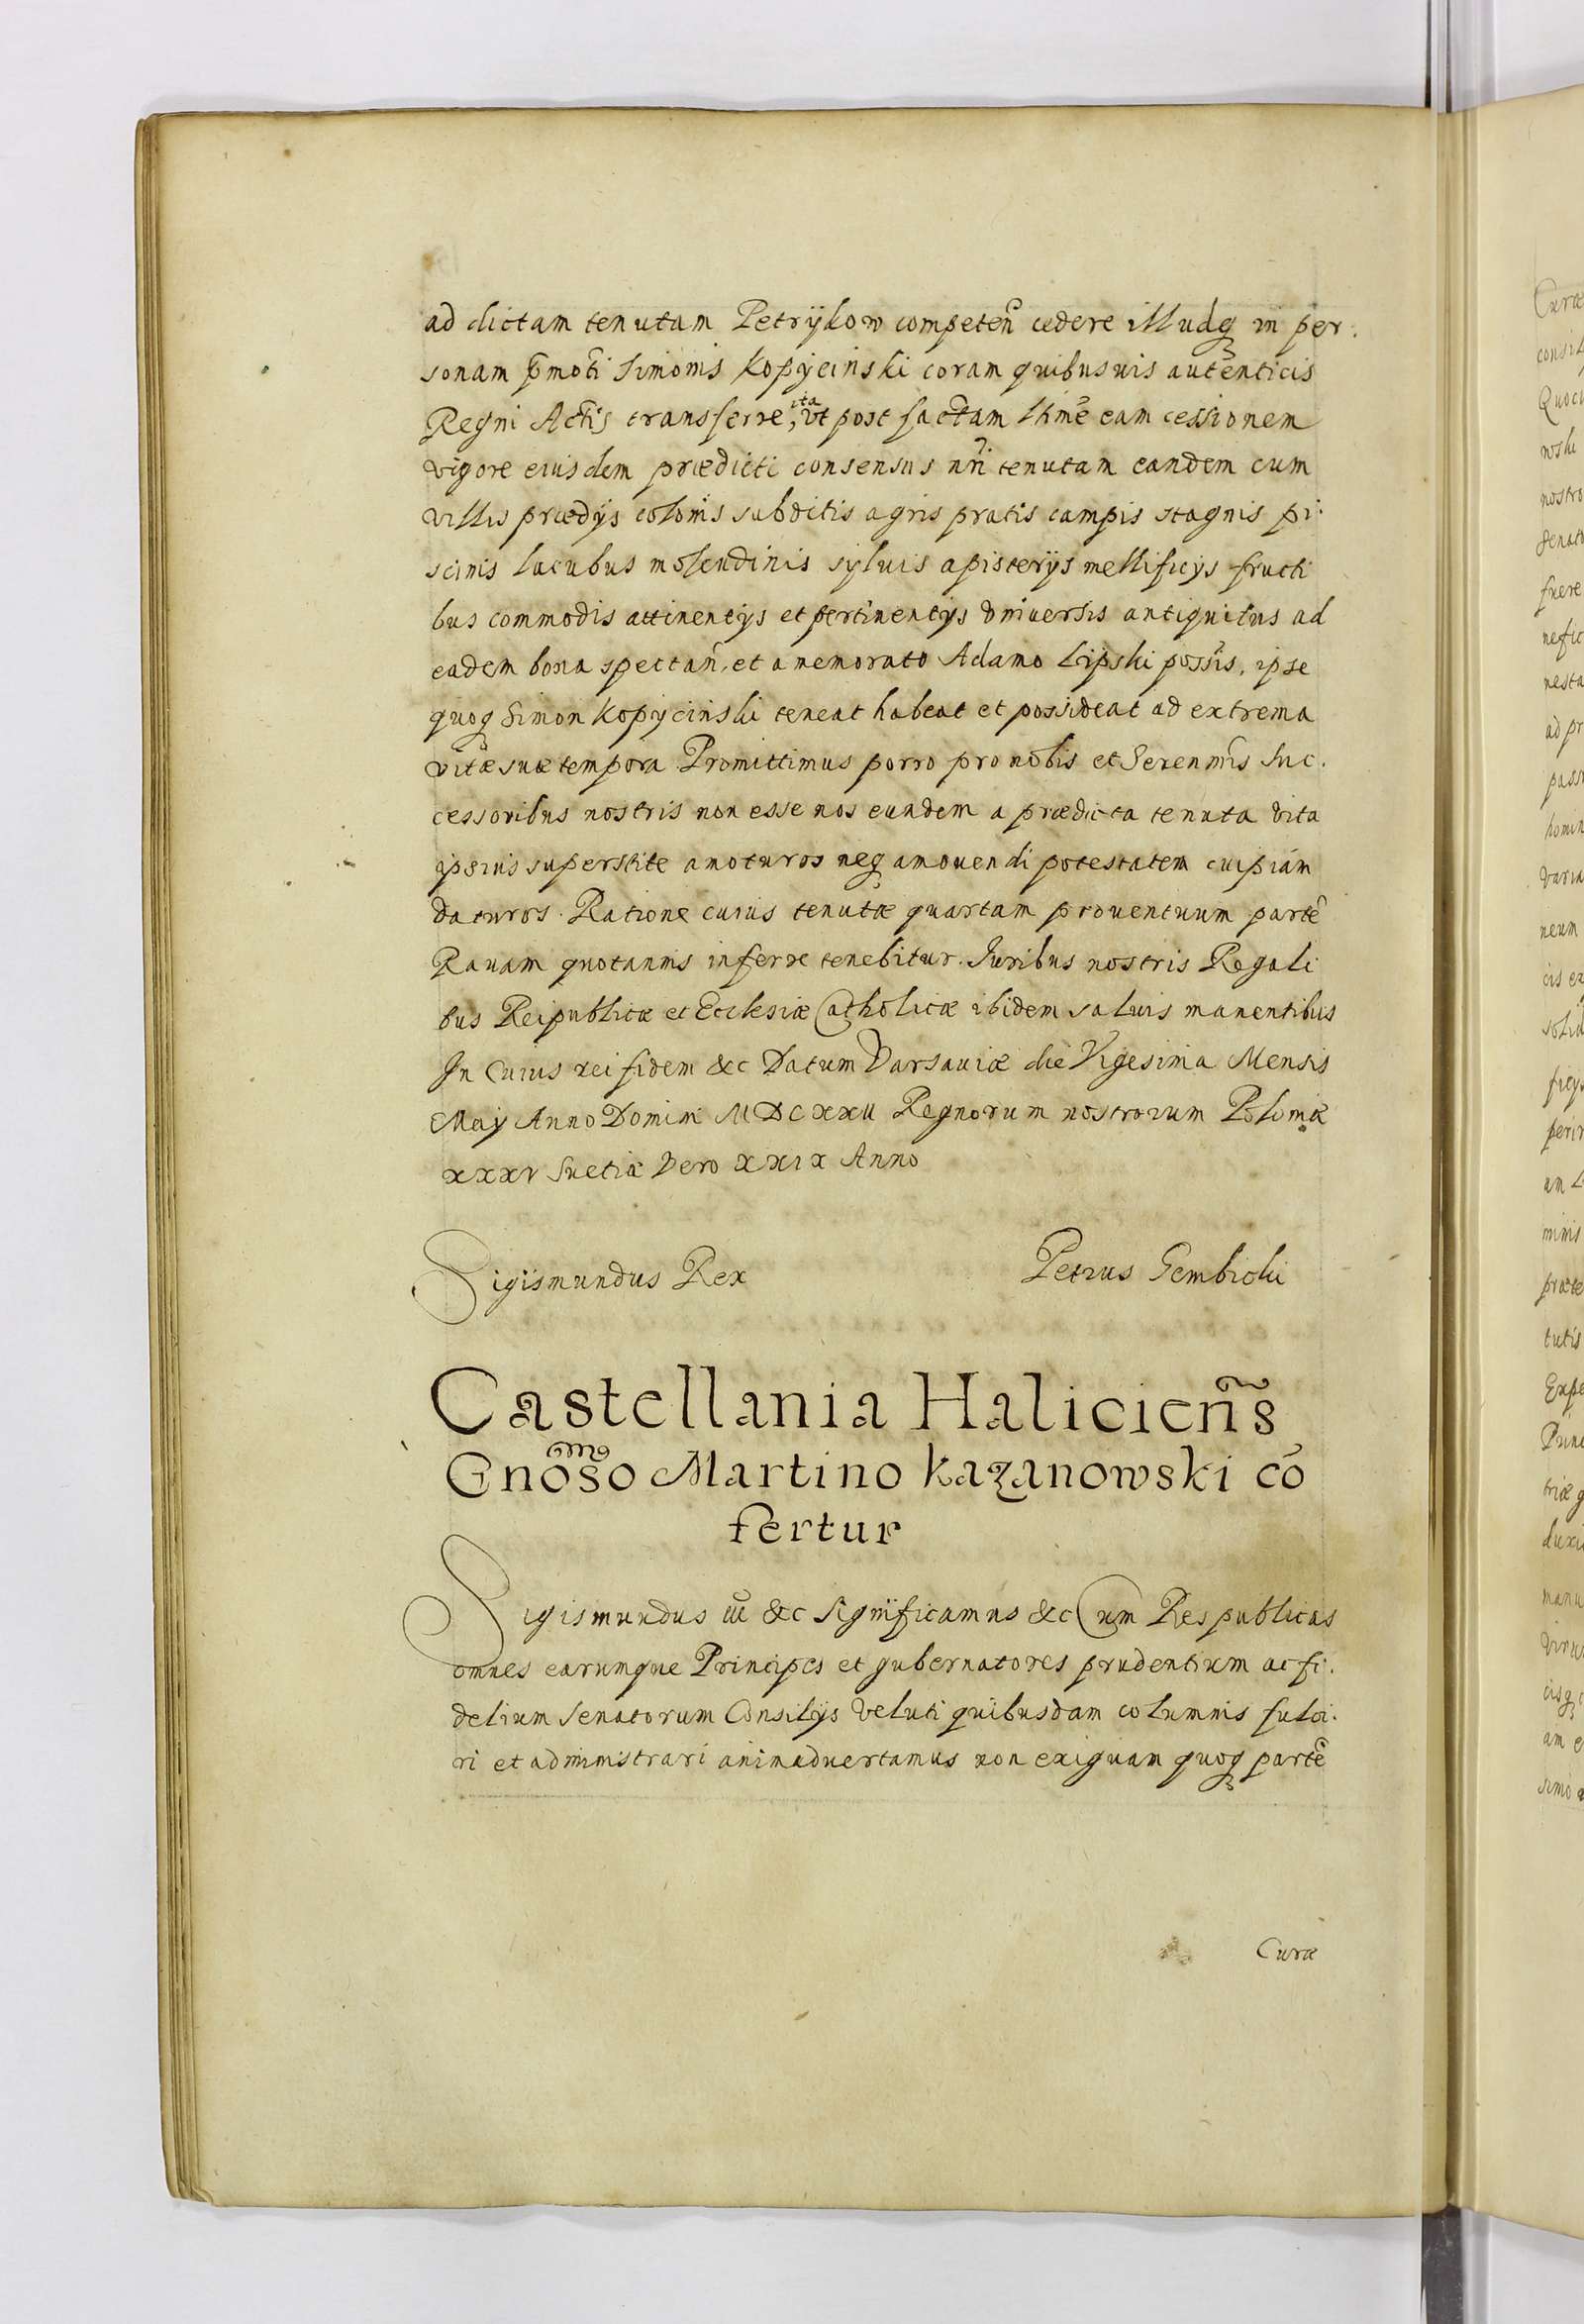 ad dictam tenutam Petrÿkow competen̄ cedere illudq in per.
sonam p̄moti Simonis Kopÿcinski coram quibusuis autenticis
Regni Actis transferre, ita vt post factam lt̄īme eam cessionem
vigore eiusdem prædicti consensus nr̄i tenutam eandem cum
villis prædÿs colonis subditis agris pratis campis stagnis pi.
scinis lacubus molendinis syluis apisterÿs mellificÿs fructi
bus commodis attinentÿs et pertinentÿs vniuersis antiquitus ad
eadem bona spectan̄, et a memorato Adamo Lipski possis, ipse
quoq Simon Kopycinski teneat habeat et possideat ad extrema
vitæ suæ tempora Promittimus porro pro nobis et Serenmis Suc.
cessoribus nostris non esse nos eundem a prædicta tenuta vita
ipsius superstite amoturos neq amouendi potestatem cuipiam
daturos. Ratione cuius tenutæ quartam prouentuum partē
Rauam quotannis inferre tenebitur. Iuribus nostris Regali
bus Reipublicæ et Ecclesiæ Catholicæ ibidem saluis manentibus
In Cuius rei fidem &c Datum Varsauiæ die Vigesima Mensis
Maÿ Anno Domini MDCXXII Regnorum nostrorum Poloniæ
XXXV Suetiæ Vero XXIX Anno
Sigismundus Rex Petrus Gembicki
Castellania Halicien̄s
Gnoso Martino Kazanowski cō
fertur
Sigismundus &c Significamus &c Cum Respublicas
omnes earumque Principes et gubernatores prudentium ac fi.
delium Senatorum Consilÿs veluti quibusdam columnis fulci.
ri et administrari animaduertamus non exiguam quoq partē
Curæ